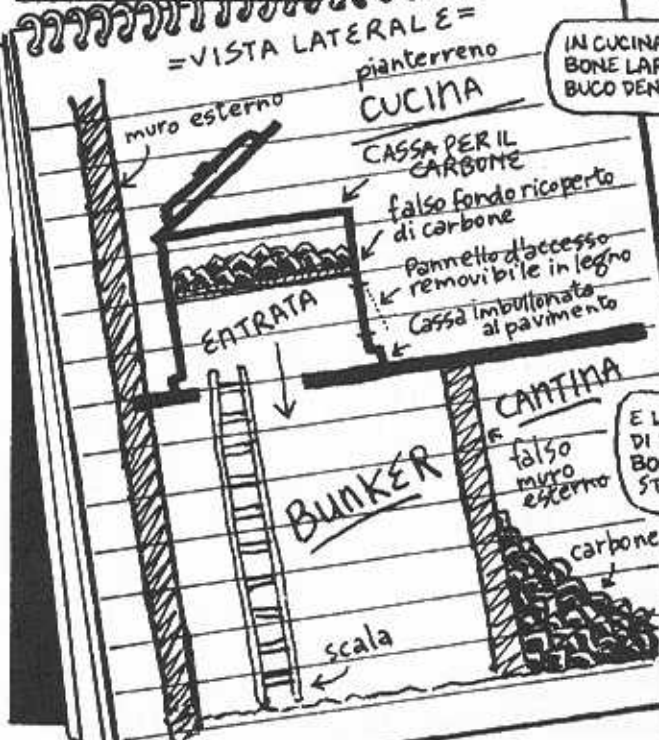 =VISTA LATERALE=
pianterreno
CUCINA
muro esterno
CASSA PER IL
CARBONE
falso fondo ricoperto
di carbone
Pannello d'accesso
removibile in legno
Cassa imbullonata
al pavimento
ENTRATA
BUNKER
CANTINA
falso
muro
esterno
carbone
scala
IN CUCINA
BONE
BUCO
DI